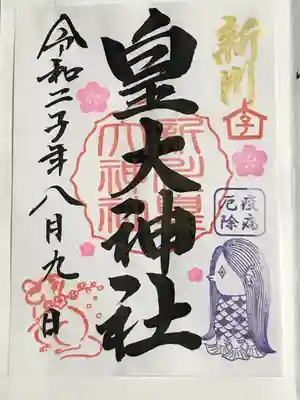 新川
子
疫病
厄除
皇大神社
新川皇
大神社
令和二子年八月九日